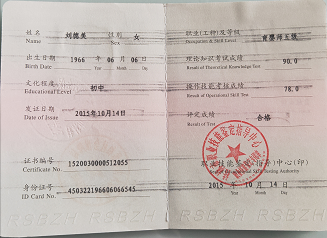 姓名 刘德美 性别 女
Name Sex
出生日期 1966 年 06 月 06 日
Birth Date Year Month Day
文化程度 初中
Educational Level
发证日期 2015年10月14日
Date of Issue
证书编号 1520030000512055
Certificate No.
身份证号 450322196606066545
ID Card No.
职业(工种)及等级 育婴师五级
Occupation & Skill Level
理论知识考试成绩 90.0
Result of Theoretical Knowledge Test
操作技能考核成绩 78.0
Result of Operational Skill Test
评定成绩 合格
Result of Test
职业技能鉴定(指导)中心(印)
Occupational Skill Testing Authority
2015 年 10 月 14 日
Year Month Day
RSBZH RSBZH